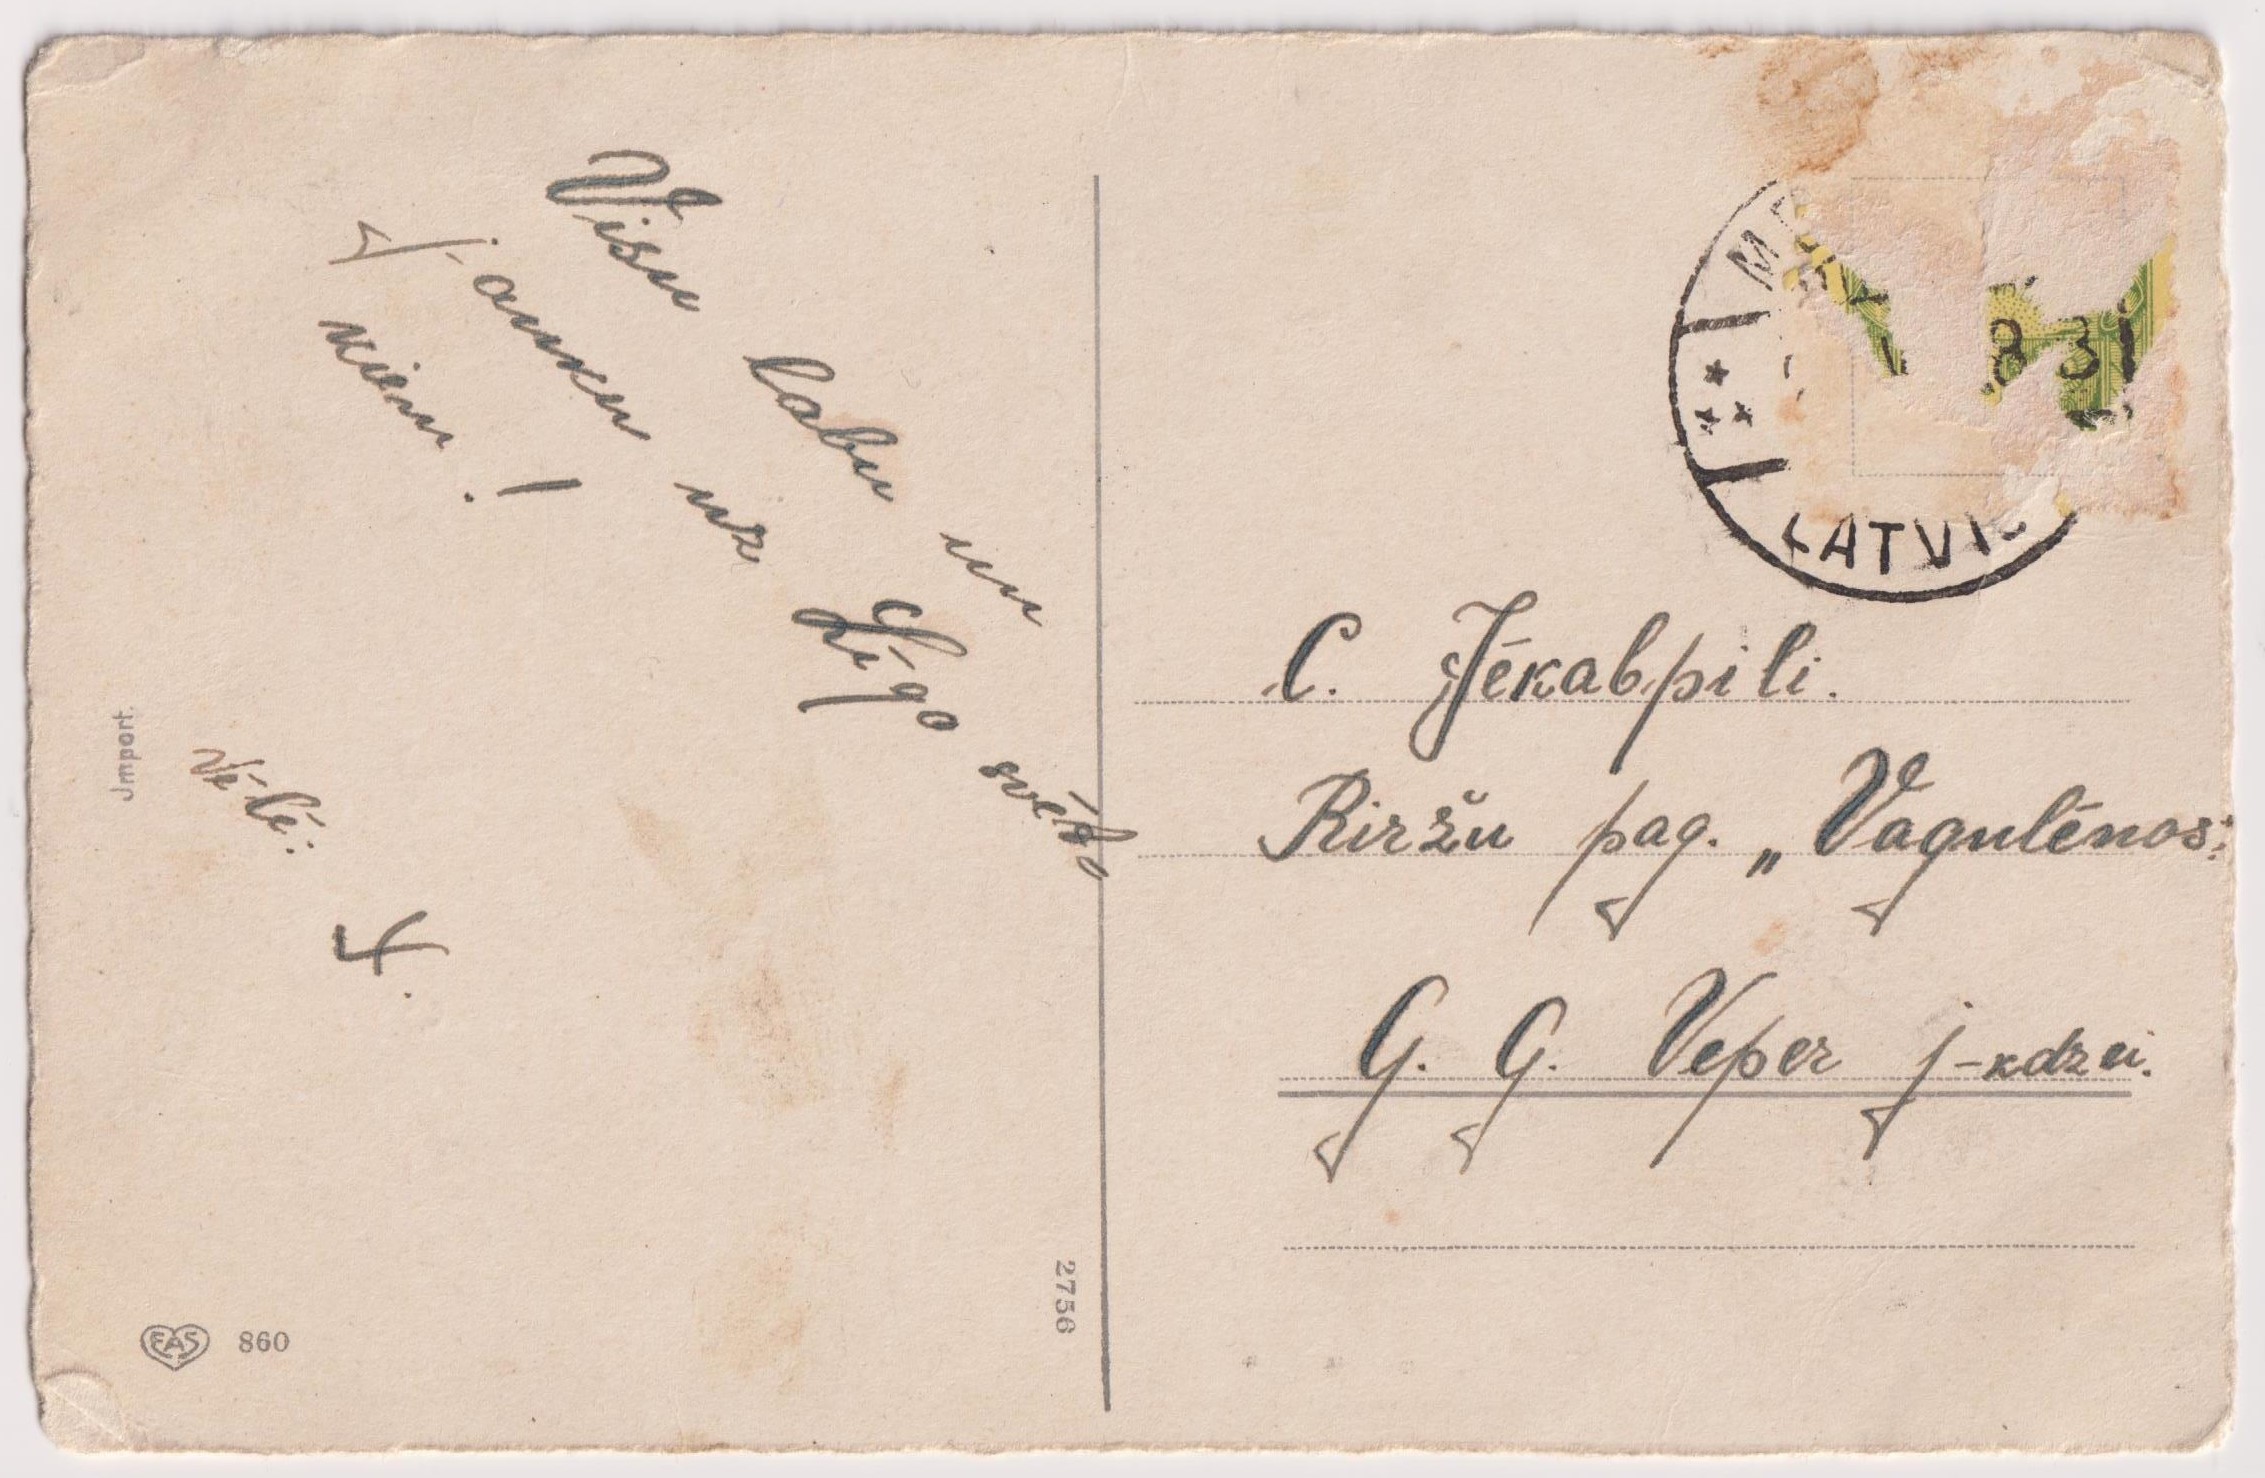 Visu labu un
jauku uz Līgo svēt-
kiem!
Vēlē:
Jmport.
EAS 860
2756
LATVI
8 31
C. Jēkabpili.
Riržu pag. „Vagulēnos"
G. G. Veper j-kdzei.